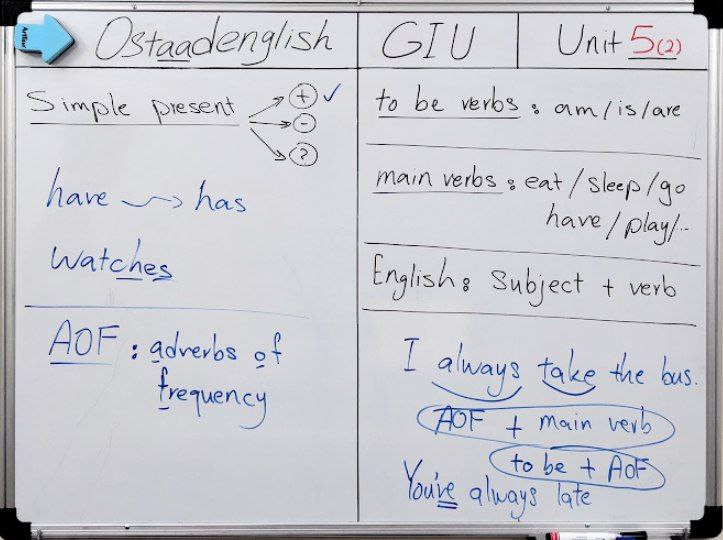 Ostaadenglish
GIU
Unit 5(2)
Simple present
+ ✓
-
?
have → has
watches
AOF : adverbs of
frequency
to be verbs : am/is/are
main verbs : eat/sleep/go
have/play/..
English : Subject + verb
I always take the bus.
AOF + main verb
to be + AOF
You're always late